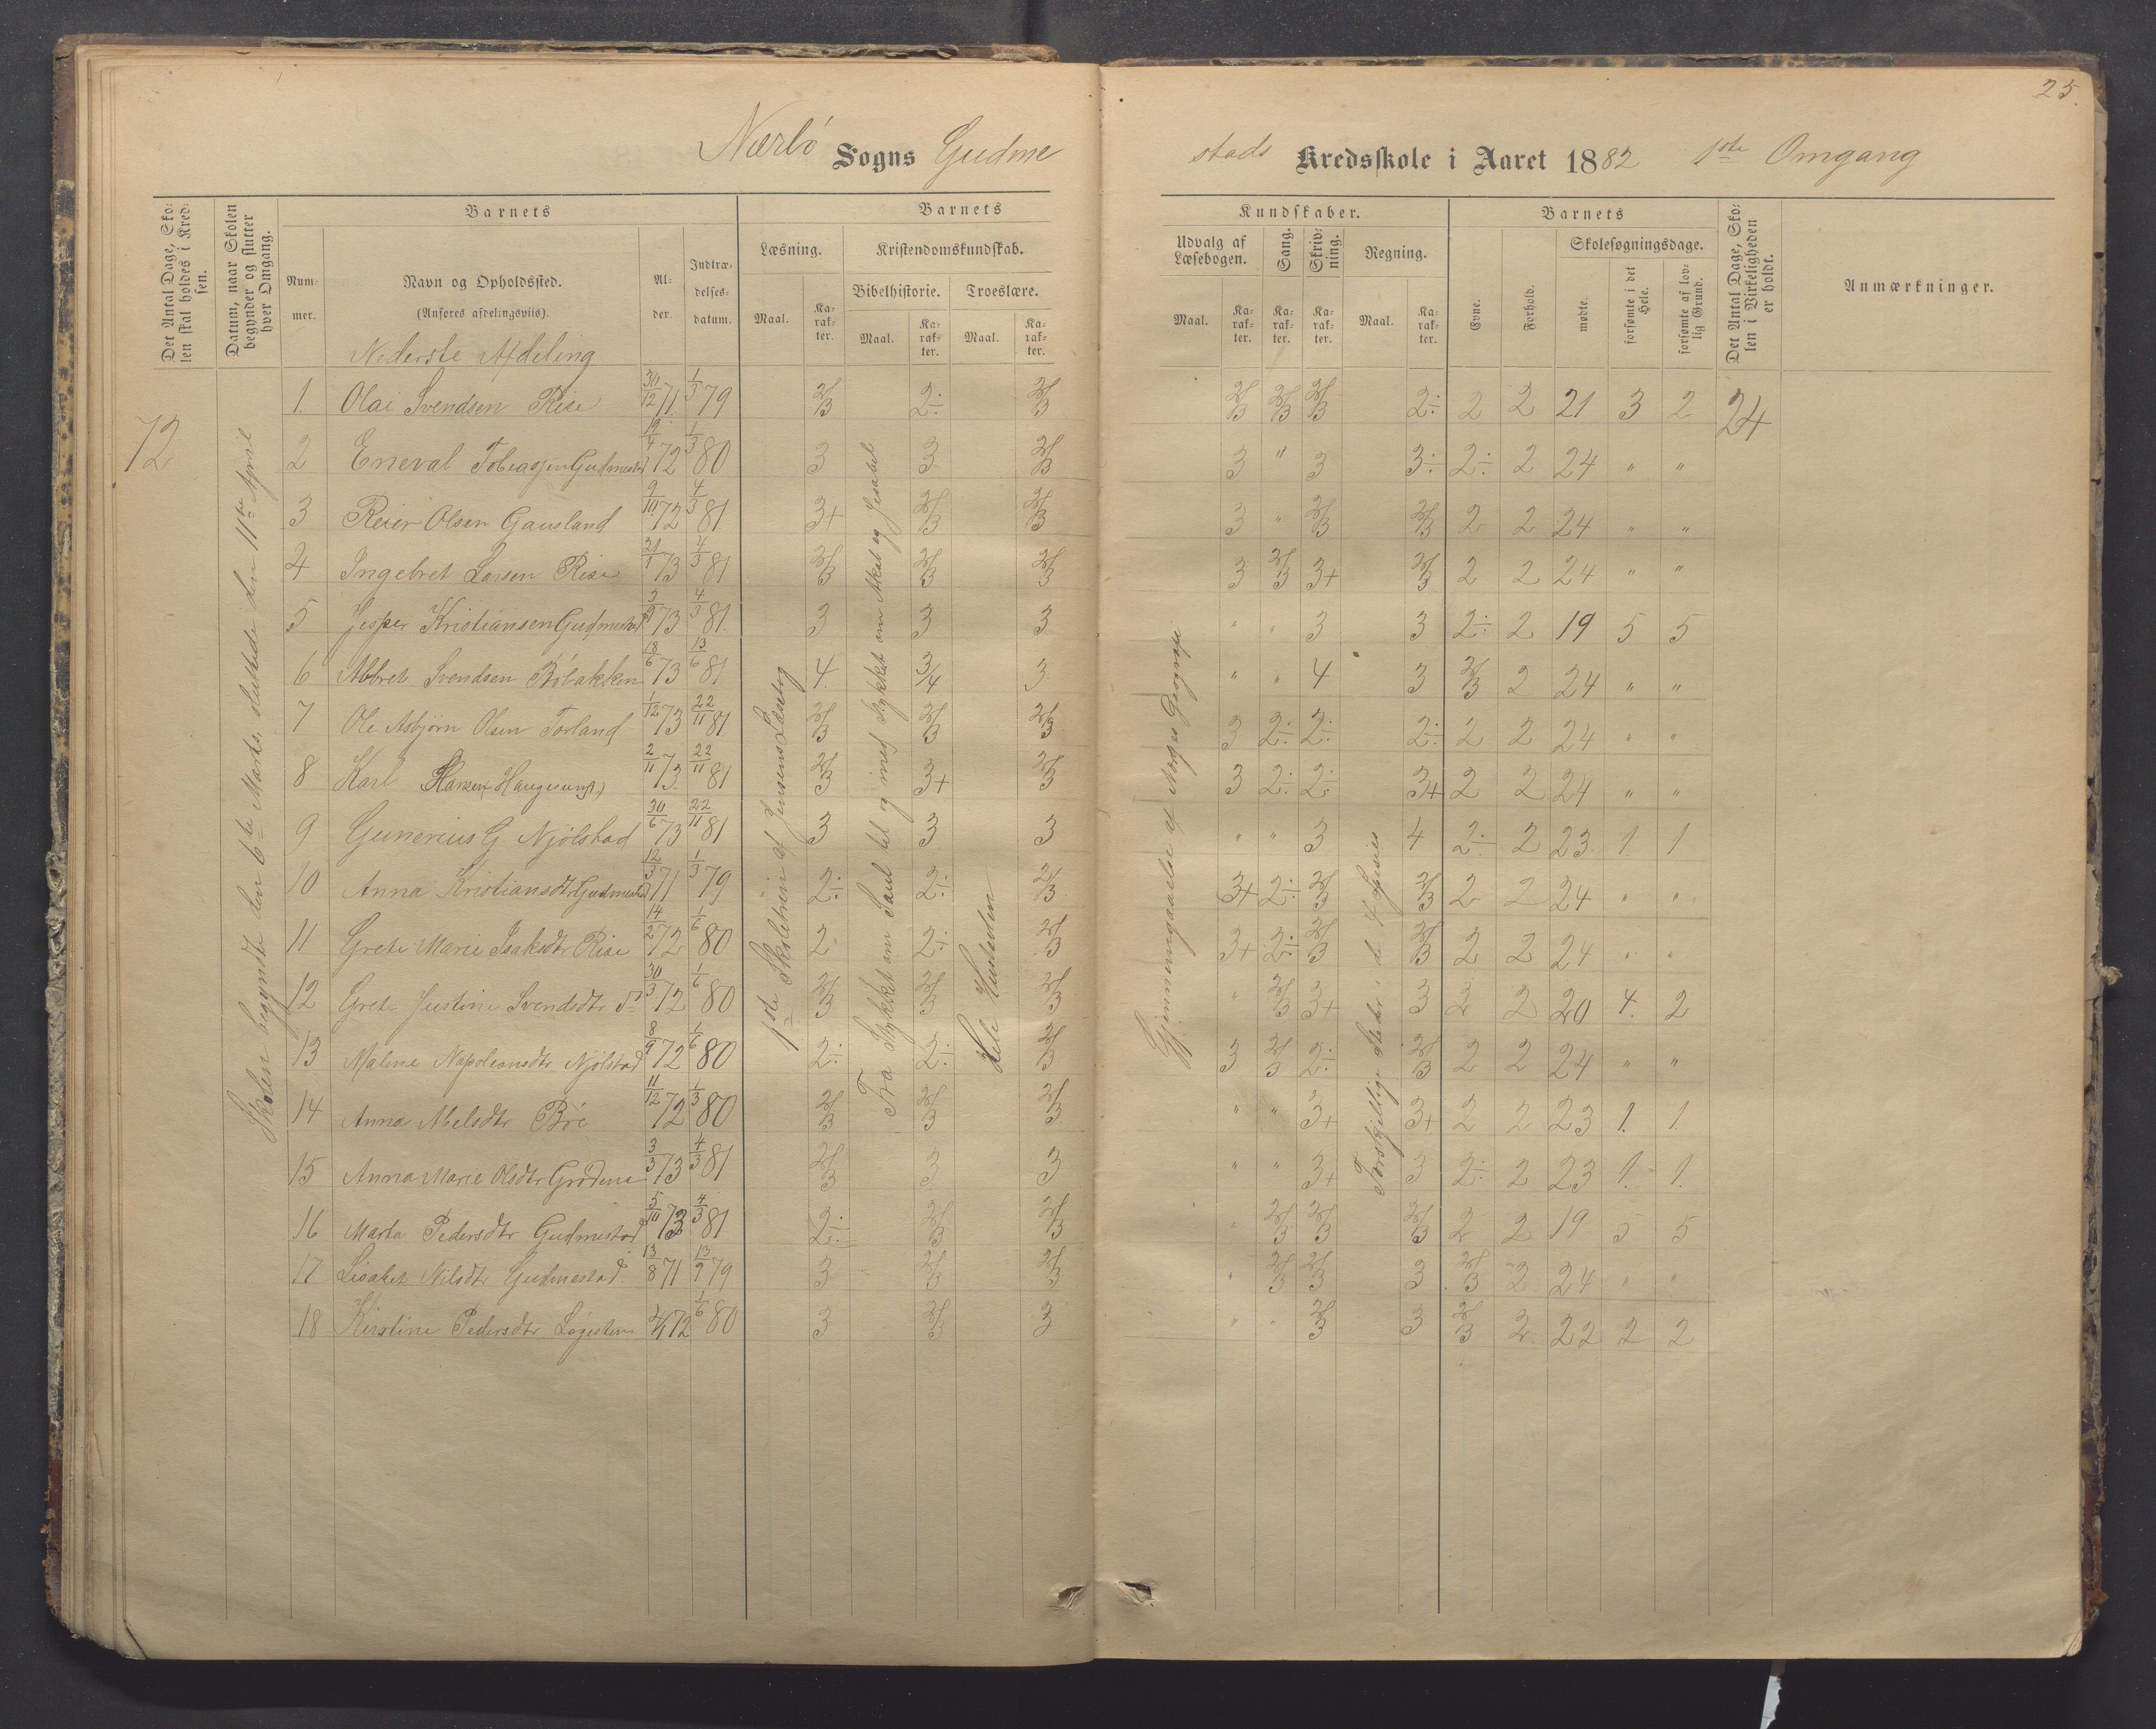 25.
Nærbø Sogns Gudmestads Kredsskole i Aaret 1882 1ste Omgang
Det Antal Dage, Skolen skal holdes i Kredsen.
Datum, naar Skolen begynder og slutter hver Omgang.
Barnets
Nummer.
Navn og Opholdssted.
(Anføres afdelingsviis).
Alder.
Indtrædelsesdatum.
Barnets Kundskaber.
Læsning.
Maal.
Karakter.
Kristendomskundskab.
Bibelhistorie.
Maal.
Karakter.
Troeslære.
Maal.
Karakter.
Udvalg af Læsebogen.
Maal.
Karakter.
Sang.
Karakter.
Skrivning.
Karakter.
Regning.
Maal.
Karakter.
Barnets
Evne.
Forhold.
Skolesøgningsdage.
mødte.
forsømte i det Hele.
forsømte af lovlig Grund.
Det Antal Dage, Skolen i Virkeligheden er holdt.
Anmærkninger.
Nederste Afdeling
72
Skolen begyndte den 6te Marts, sluttede den 11te April
1ste Skoletrin af Jensens Læsebog
Fra Stykket om Saul til og med Stykket om Akab og Jesabel
Hele Hustavlen
Gjennemgaaelse af Norges Geografi
Forskjellige Steder i de 4 Spesies
1. Olai Svendsen Rise 30/12 71. 1/3 79 2/3 2÷ 2/3 2/3 2/3 2/3 2÷ 2 2 21 3 2 24
2 Eneval Tobiassen Gudmestad 19/4 72 1/3 80 3 3 2/3 3 " 3 3÷ 2÷ 2 24 " "
3 Reier Olsen Gausland 9/10 72 4/3 81 3+ 2/3 2/3 3 " 2/3 2/3 2 2 24 " "
4 Ingebret Larsen Rise 21/1 73 4/3 81 2/3 2/3 2/3 3 2/3 3+ 2/3 2 2 24 " "
5 Jesper Kristiansen Gudmestad 3/9 73 4/3 81. 3 3 3 " " 3 3 2÷ 2 19 5 5
6 Abbret Svendsen Bøbakken 18/6 73 13/6 81 4. 3/4 3 " " 4 3 2/3 2 24 " "
7 Ole Asbjørn Olsen Torland 1/12 73 22/11 81 2/3 2/3 2/3 3 2÷ 2÷ 2÷ 2 2 24 " "
8 Karl Hansen (Haugesund) 2/11 73. 22/11 81 2/3 3+ 2/3 3 2÷ 2÷ 3+ 2 2 24 " "
9 Gunerius G Njølstad 30/6 73 22/11 81 3 3 3 " " 3 4 2÷ 2 23 1. 1
10 Anna Kristiansdtr Gudmestad 12/3 71 1/3 79 2÷ 2÷ 2/3 3+ 2÷ 2/3 2/3 2 2 24 " "
11 Grete Marie Isaksdtr Rise 14/2 72 1/6 80 2 2÷ 2/3 3+ 2÷ 2/3 2/3 2 2 24 " "
12 Grete Justine Svendsdtr do 30/3 72 1/6 80 2/3 2/3 2/3 " 2/3 3+ 3 2 2 20 4. 2
13 Maline Napoleonsdtr Njølstad 8/9 72 1/6 80 2÷ 2÷ 2/3 3 2/3 2÷ 2/3 2 2 24 " "
14 Anna Abelsdtr Bøe 11/12 72 1/3 80 2/3 2/3 2/3 " " 3+ 3+ 2 2 23 1. 1.
15 Anna Marie Olsdtr Grødem 3/3 73 4/3 81 2/3 3 3 " " 3+ 3 2÷ 2 23 1. 1.
16 Marta Pedersdtr Gudmestad 5/10 73 4/3 81 2÷ 2/3 2/3 " 2/3 2/3 2/3 2 2 19 5 5
17 Lisabet Nilsdtr Gudmestad 13/8 71 13/9 79 3 2/3 2/3 " 2/3 2/3 3 2/3 2 24 " "
18 Kirstine Pedersdtr 72 1/6 80 3 2/3 3 " " 2/3 3 2/3 2 22 2 2